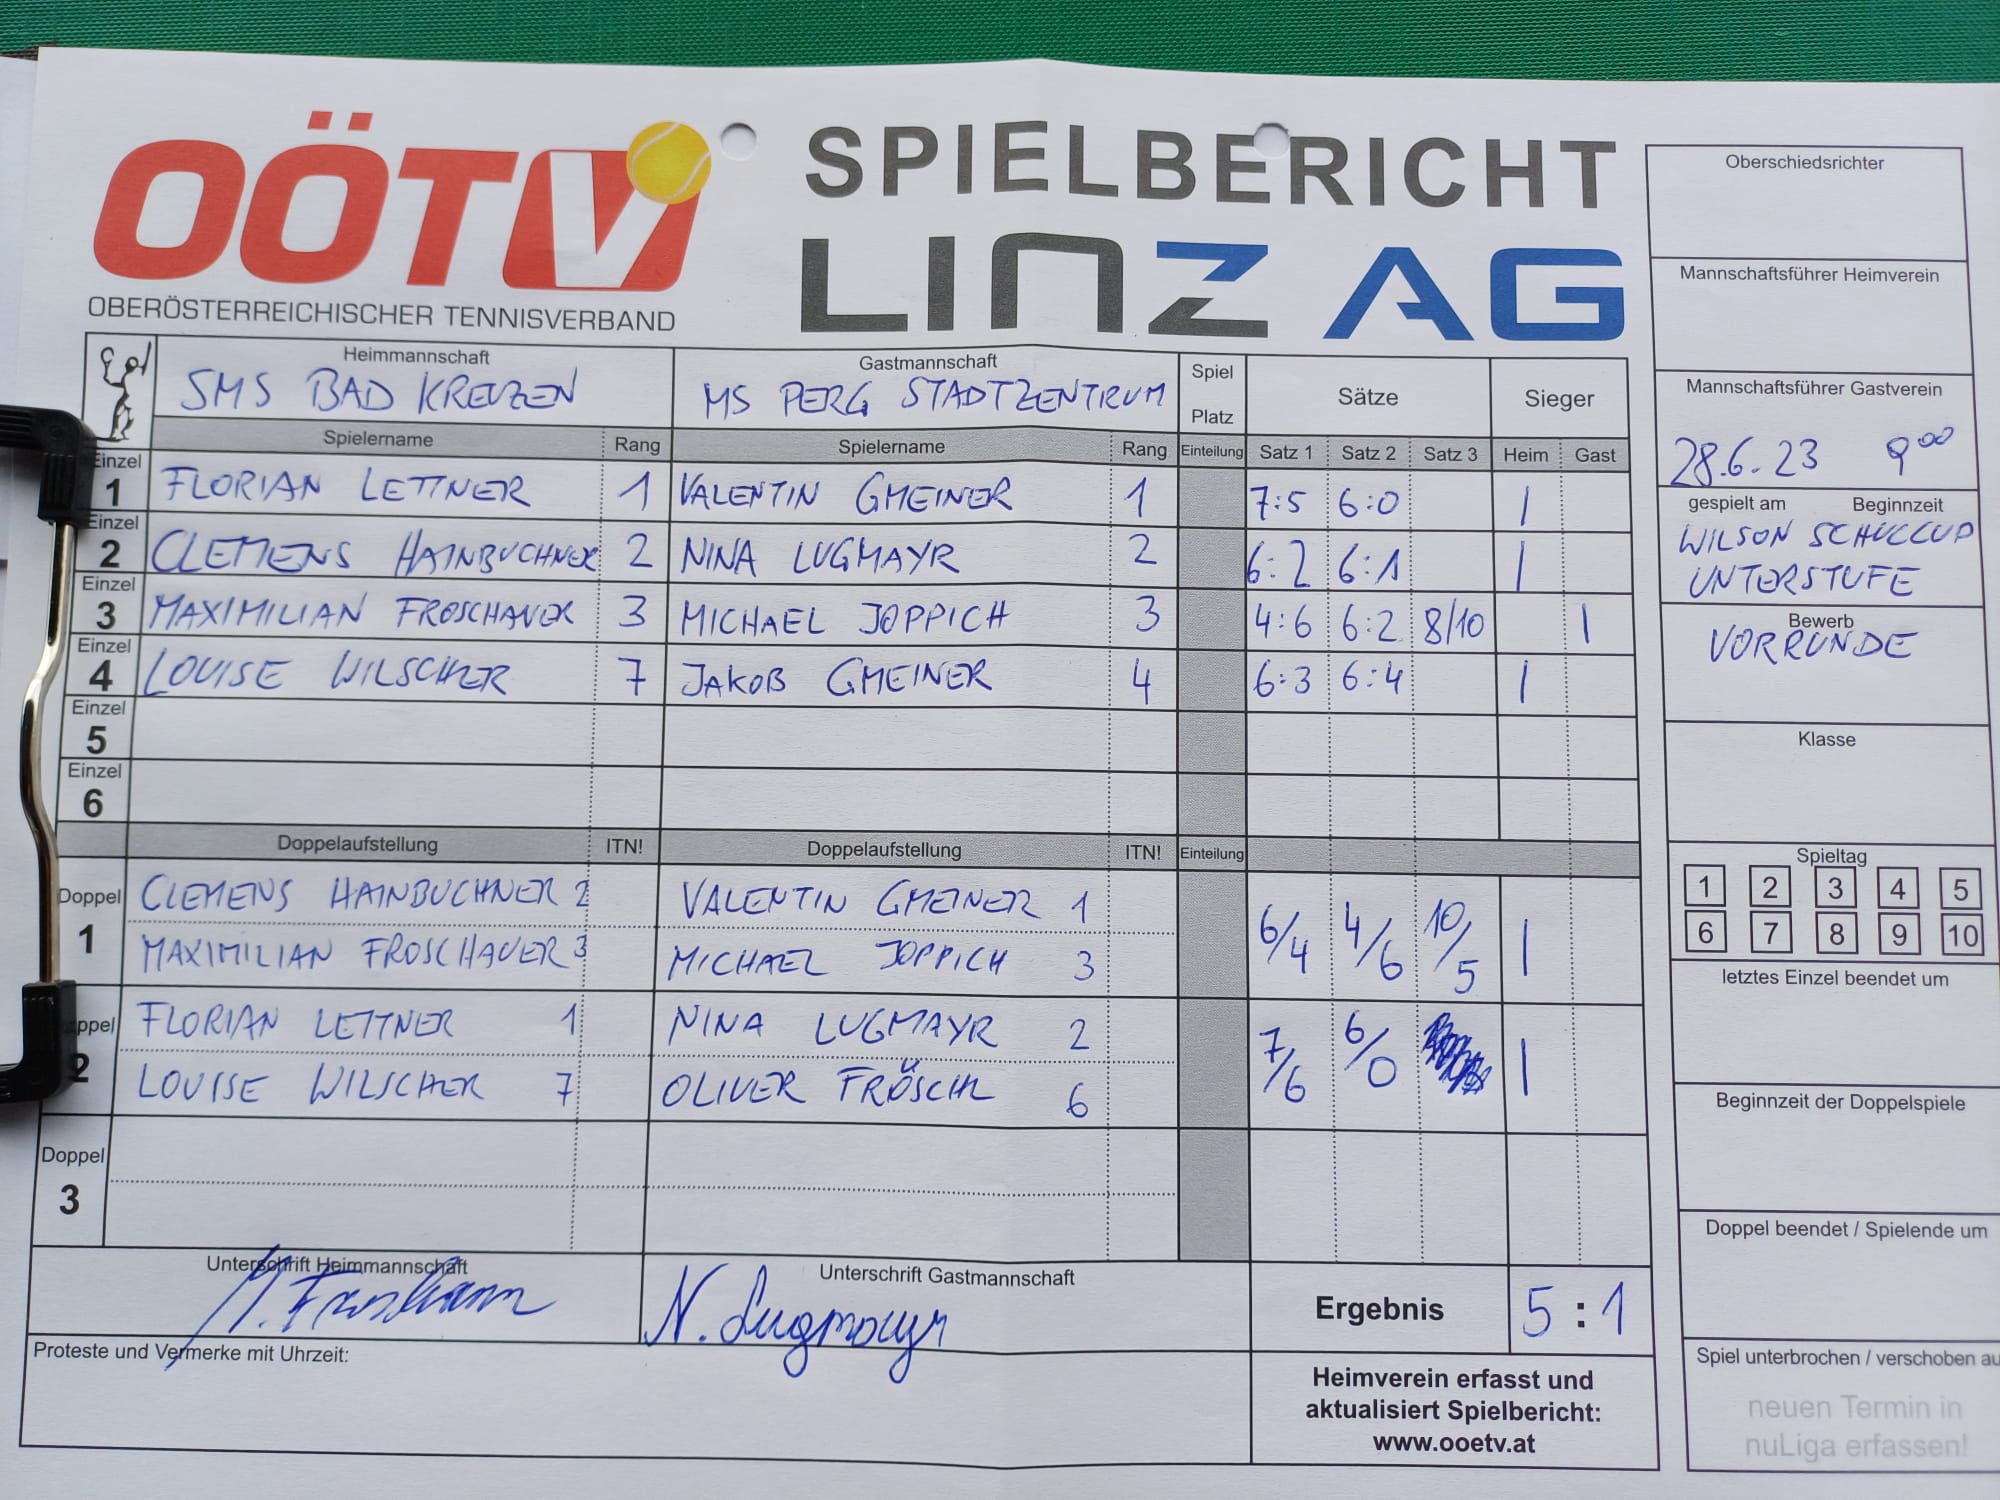 OÖTV
OBERÖSTERREICHISCHER TENNISVERBAND
SPIELBERICHT
LINZ AG
Heimmannschaft
SMS BAD KREUZEN
Gastmannschaft
MS PERG STADTZENTRUM
Spiel
Platz
Sätze
Sieger
Spielername Rang Spielername Rang Einteilung Satz 1 Satz 2 Satz 3 Heim Gast
Einzel 1 FLORIAN LETTNER 1 VALENTIN GMEINER 1 7:5 6:0 |
Einzel 2 CLEMENS HAINBUCHNER 2 NINA LUGMAYR 2 6:2 6:1 |
Einzel 3 MAXIMILIAN FROSCHAUER 3 MICHAEL JOPPICH 3 4:6 6:2 8/10 |
Einzel 4 LOUISE WILSCHER 7 JAKOB GMEINER 4 6:3 6:4 |
Einzel 5
Einzel 6
Doppelaufstellung ITN! Doppelaufstellung ITN! Einteilung
Doppel 1
CLEMENS HAINBUCHNER 2 VALENTIN GMEINER 1 6/4 4/6 10/5 |
MAXIMILIAN FROSCHAUER 3 MICHAEL JOPPICH 3
Doppel 2
FLORIAN LETTNER 1 NINA LUGMAYR 2 7/6 6/0 |
LOUISE WILSCHER 7 OLIVER FRÖSCHL 6
Doppel 3
Unterschrift Heimmannschaft
Unterschrift Gastmannschaft
N. Lugmayr
Ergebnis 5:1
Proteste und Vermerke mit Uhrzeit:
Heimverein erfasst und
aktualisiert Spielbericht:
www.ooetv.at
Oberschiedsrichter
Mannschaftsführer Heimverein
Mannschaftsführer Gastverein
28.6.23 9⁰⁰
gespielt am Beginnzeit
WILSON SCHULCUP
UNTERSTUFE
Bewerb
VORRUNDE
Klasse
Spieltag
1 2 3 4 5
6 7 8 9 10
letztes Einzel beendet um
Beginnzeit der Doppelspiele
Doppel beendet / Spielende um
Spiel unterbrochen / verschoben au
neuen Termin in
nuLiga erfassen!